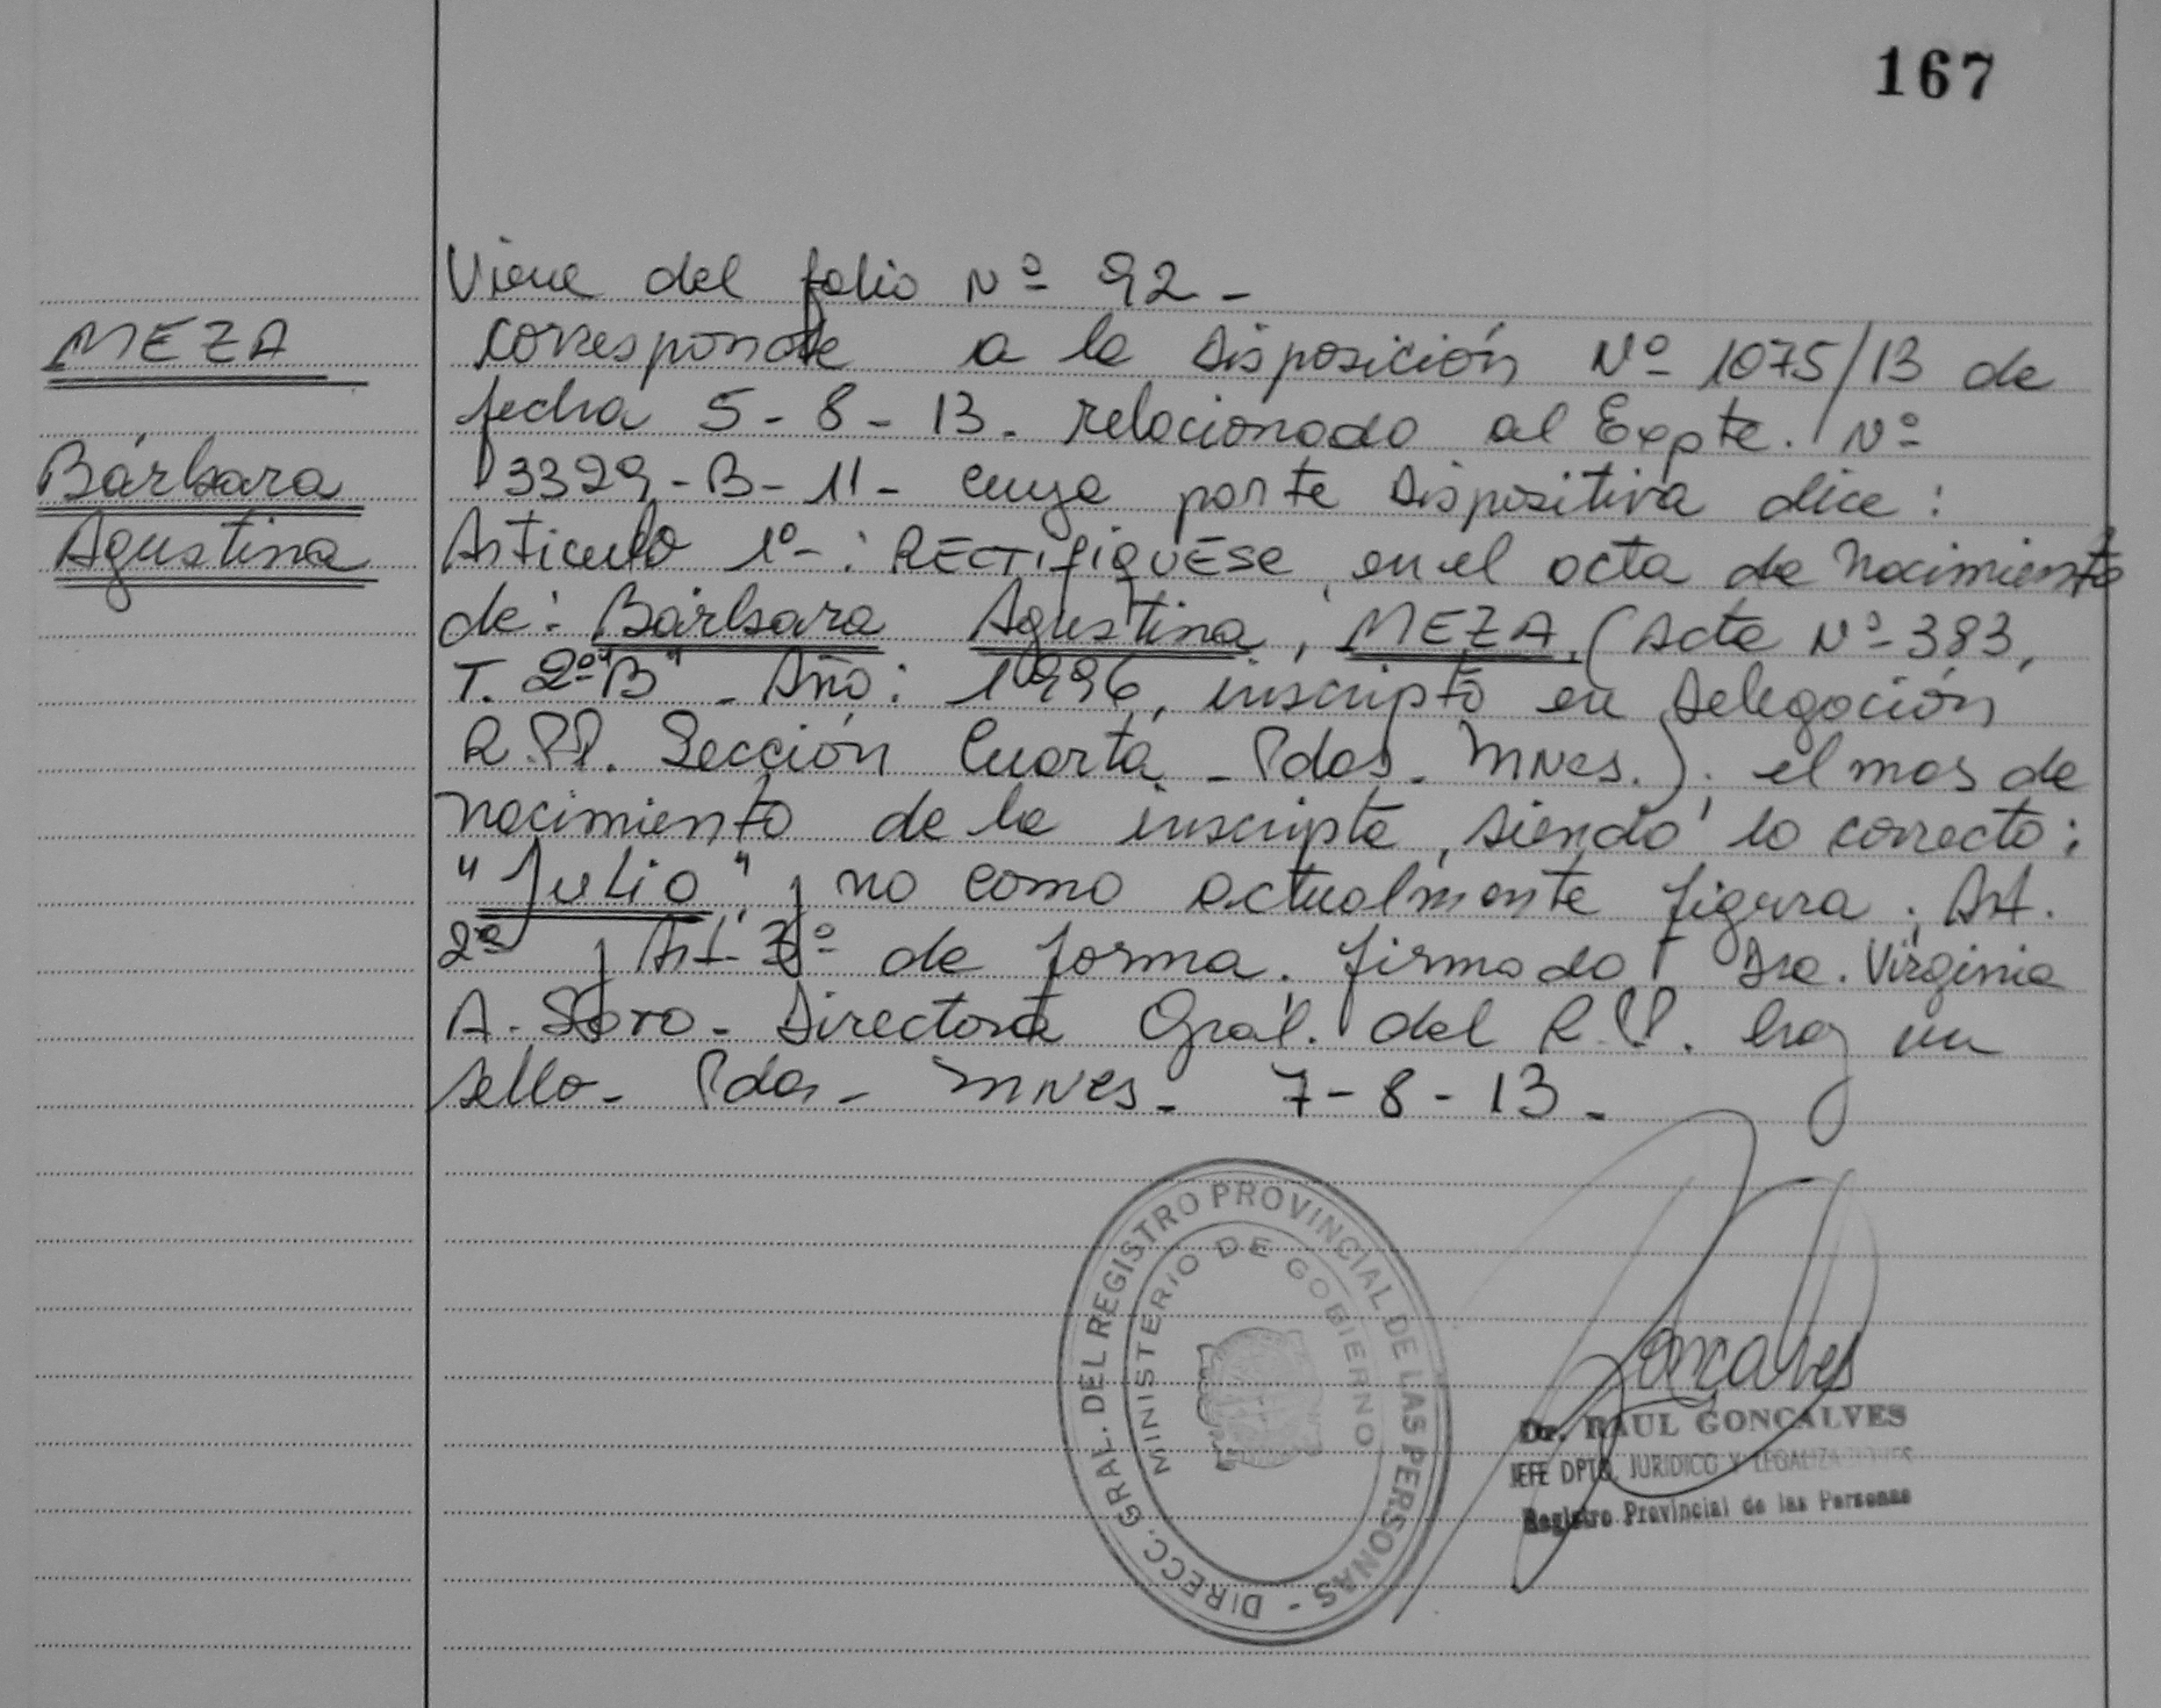 167
Viene del folio Nº 92 -
MEZA
corresponde a la disposición Nº 1075/13 de
fecha 5-8-13. relacionado al Expte. Nº
Bárbara
3329-B-11- cuya parte dispositiva dice:
Agustina
Artículo 1º-: RECTIFIQUESE, en el acta de nacimiento
de: Bárbara Agustina, MEZA. (Acta Nº 383,
T. 2º "B" - Año: 1996, inscripta en delegación
R.P.P. Sección Cuarta - Pdas. Mnes.); el mes de
nacimiento de la inscripta, siendo lo correcto:
"Julio" y no como actualmente figura. Art.
2º y Art. 3º de forma. firmado Dra. Virginia
A. Directora Gral. del R.P.P. hay un
sello - Pdas - Mnes. 7-8-13.
DIRECC. GRAL. DEL REGISTRO PROVINCIAL DE LAS PERSONAS -
MINISTERIO DE GOBIERNO
Goncalves
Dr. RAUL GONCALVES
JEFE DPTO. JURIDICO Y LEGALIZACIONES
Registro Provincial de las Personas